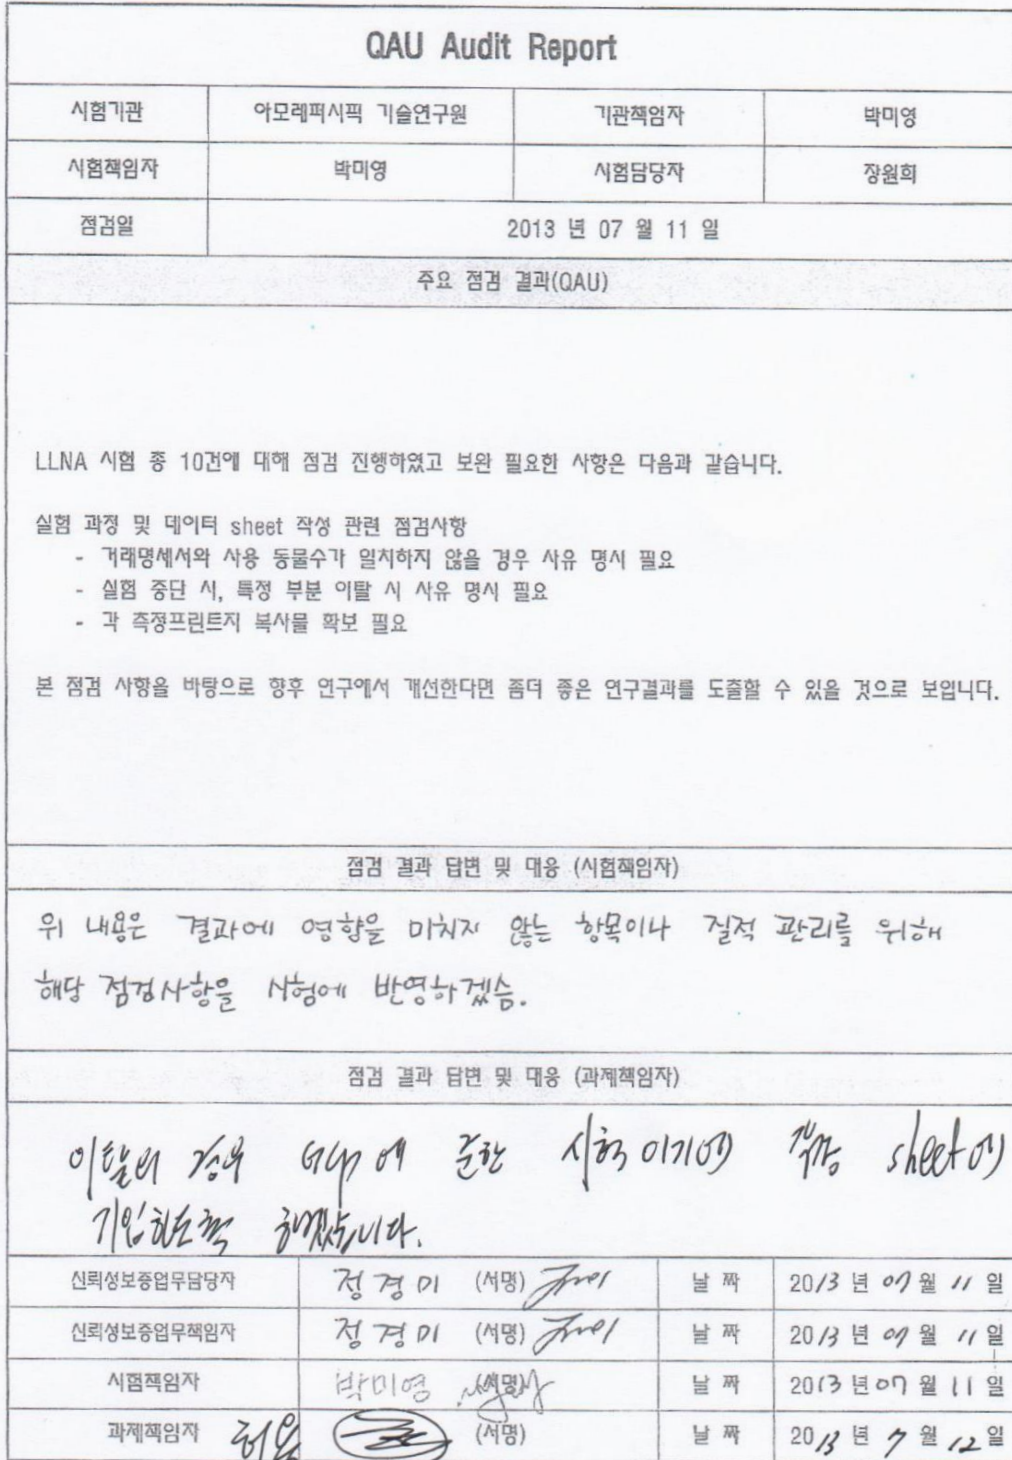 QAU Audit Report
시험기관 아모레퍼시픽 기술연구원 기관책임자 박미영
시험책임자 박미영 시험담당자 장원희
점검일 2013 년 07 월 11 일
주요 점검 결과(QAU)
LLNA 시험 중 10건에 대해 점검 진행하였고 보완 필요한 사항은 다음과 같습니다.
실험 과정 및 데이터 sheet 작성 관련 점검사항
- 거래명세서와 사용 동물수가 일치하지 않을 경우 사유 명시 필요
- 실험 중단 시, 특정 부분 이탈 시 사유 명시 필요
- 각 측정프린트지 복사물 확보 필요
본 점검 사항을 바탕으로 향후 연구에서 개선한다면 좀더 좋은 연구결과를 도출할 수 있을 것으로 보입니다.
점검 결과 답변 및 대응 (시험책임자)
위 내용은 결과에 영향을 미치지 않는 항목이나 질적 관리를 위해
해당 점검사항을 시험에 반영하겠슴.
점검 결과 답변 및 대응 (과제책임자)
이탈의 경우 GLP에 준한 시험이기에 sheet에
기입하도록 하겠습니다.
신뢰성보증업무담당자 정경미 (서명) 날 짜 2013 년 07 월 11 일
신뢰성보증업무책임자 정경미 (서명) 날 짜 2013 년 07 월 11 일
시험책임자 박미영 (서명) 날 짜 2013 년 07 월 11 일
과제책임자 허용 (서명) 날 짜 2013 년 7 월 12 일